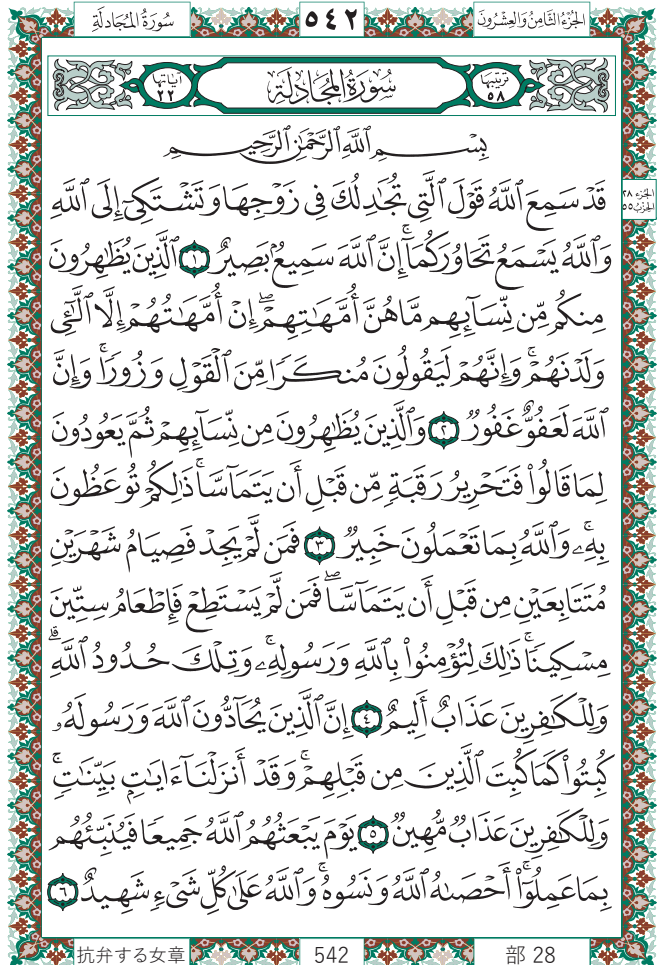 الجُزْءُ الثَّامِنُ وَالعِشْرُونَ ٥٤٢ سُورَةُ المُجَادلَةِ
تَرتِيبُهَا ٥٨ سُورَةُ المُجَادلَةِ آيَاتُهَا ٢٢
بِسْمِ ٱللَّهِ ٱلرَّحْمَٰنِ ٱلرَّحِيمِ
قَدْ سَمِعَ ٱللَّهُ قَوْلَ ٱلَّتِي تُجَٰدِلُكَ فِي زَوْجِهَا وَتَشْتَكِيٓ إِلَى ٱللَّهِ
الجزء ٢٨
الحزب ٥٥
وَٱللَّهُ يَسْمَعُ تَحَاوُرَكُمَآۚ إِنَّ ٱللَّهَ سَمِيعُۢ بَصِيرٌ ١ ٱلَّذِينَ يُظَٰهِرُونَ
مِنكُم مِّن نِّسَآئِهِم مَّا هُنَّ أُمَّهَٰتِهِمْۖ إِنْ أُمَّهَٰتُهُمْ إِلَّا ٱلَّٰٓـِٔي
وَلَدْنَهُمْۚ وَإِنَّهُمْ لَيَقُولُونَ مُنكَرًا مِّنَ ٱلْقَوْلِ وَزُورًاۚ وَإِنَّ
ٱللَّهَ لَعَفُوٌّ غَفُورٌ ٢ وَٱلَّذِينَ يُظَٰهِرُونَ مِن نِّسَآئِهِمْ ثُمَّ يَعُودُونَ
لِمَا قَالُوا۟ فَتَحْرِيرُ رَقَبَةٍ مِّن قَبْلِ أَن يَتَمَآسَّاۚ ذَٰلِكُمْ تُوعَظُونَ
بِهِۦۚ وَٱللَّهُ بِمَا تَعْمَلُونَ خَبِيرٌ ٣ فَمَن لَّمْ يَجِدْ فَصِيَامُ شَهْرَيْنِ
مُتَتَابِعَيْنِ مِن قَبْلِ أَن يَتَمَآسَّاۖ فَمَن لَّمْ يَسْتَطِعْ فَإِطْعَامُ سِتِّينَ
مِسْكِينًاۚ ذَٰلِكَ لِتُؤْمِنُوا۟ بِٱللَّهِ وَرَسُولِهِۦۚ وَتِلْكَ حُدُودُ ٱللَّهِۗ
وَلِلْكَٰفِرِينَ عَذَابٌ أَلِيمٌ ٤ إِنَّ ٱلَّذِينَ يُحَآدُّونَ ٱللَّهَ وَرَسُولَهُۥ
كُبِتُوا۟ كَمَا كُبِتَ ٱلَّذِينَ مِن قَبْلِهِمْۚ وَقَدْ أَنزَلْنَآ ءَايَٰتٍۭ بَيِّنَٰتٍۚ
وَلِلْكَٰفِرِينَ عَذَابٌ مُّهِينٌ ٥ يَوْمَ يَبْعَثُهُمُ ٱللَّهُ جَمِيعًا فَيُنَبِّئُهُم
بِمَا عَمِلُوٓا۟ۚ أَحْصَىٰهُ ٱللَّهُ وَنَسُوهُۚ وَٱللَّهُ عَلَىٰ كُلِّ شَيْءٍ شَهِيدٌ ٦
抗弁する女章 542 部 28